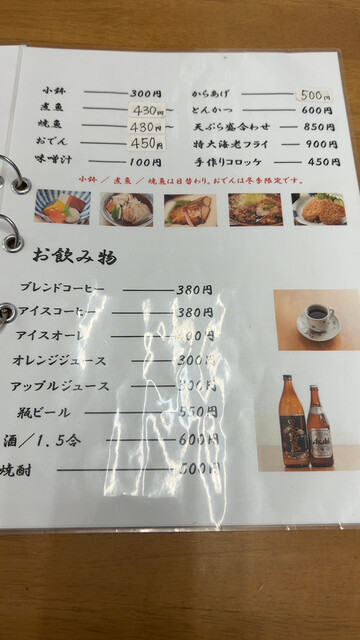 小鉢 300円
煮魚 430円～
焼魚 430円～
おでん 450円
味噌汁 100円
からあげ 500円
とんかつ 600円
天ぷら盛合わせ 850円
特大海老フライ 900円
手作りコロッケ 450円
小鉢 ／ 煮魚 ／ 焼魚は日替わり。おでんは冬季限定です。
お飲み物
ブレンドコーヒー 380円
アイスコーヒー 380円
アイスオーレ 400円
オレンジジュース 300円
アップルジュース 300円
瓶ビール 550円
酒／1.5合 600円
焼酎 500円
Asahi